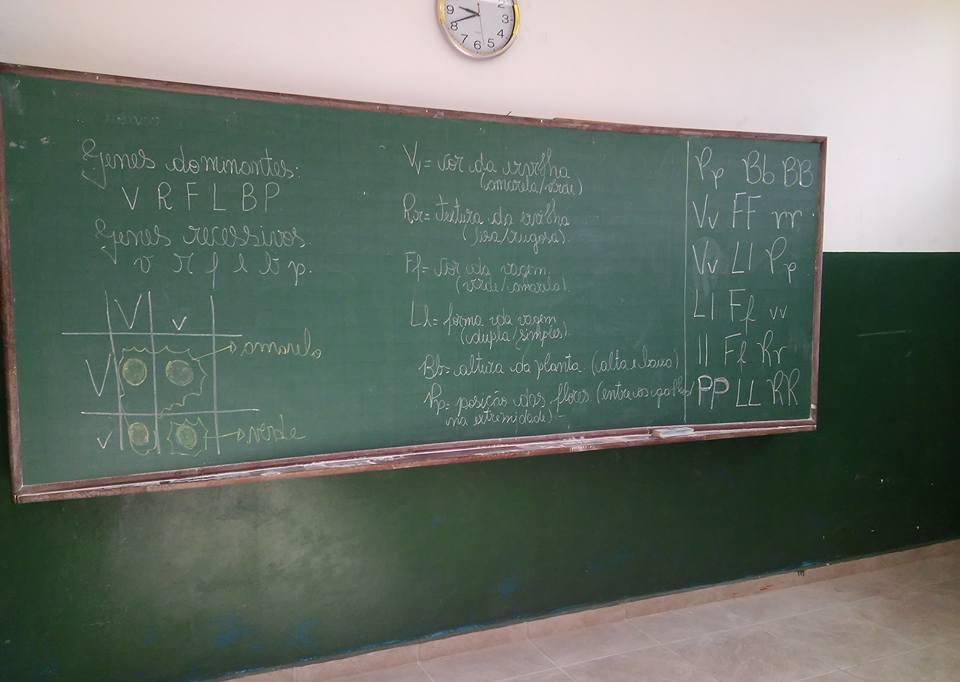 9
8
7
6
5
4
3
Genes dominantes:
V R F L B P
Genes recessivos.
v r f l b p.
V v
V
amarela
v
verde
Vv = cor da ervilha
(amarela/verde)
Rr = textura da ervilha
(lisa/rugosa).
Ff = cor da vagem.
(verde/amarela).
Ll = forma da vagem
(dupla/simples)
Bb = altura da planta. (alta e baixa)
Pp = posição das flores. (entre os galhos/
na extremidade)
Pp Bb BB
Vv FF rr
Vv Ll Pp
Ll Ff vv
ll Ff Rr
PP LL RR